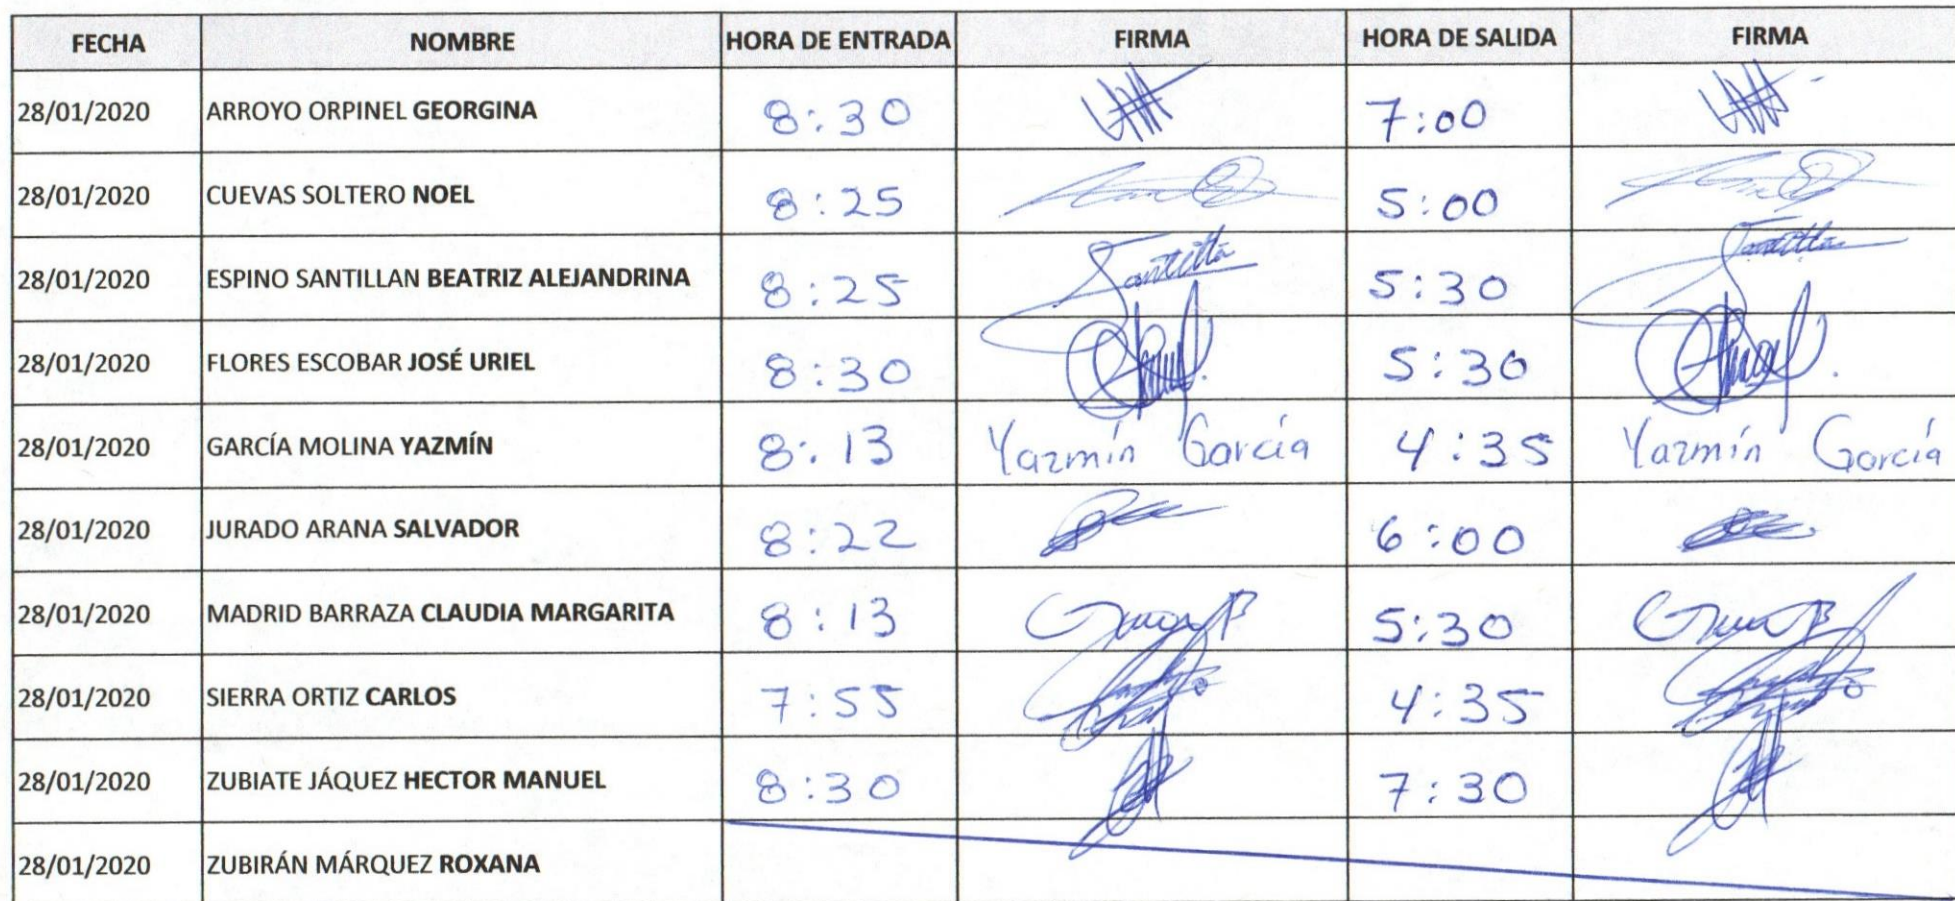 FECHA NOMBRE HORA DE ENTRADA FIRMA HORA DE SALIDA FIRMA
28/01/2020 ARROYO ORPINEL GEORGINA 8:30 7:00
28/01/2020 CUEVAS SOLTERO NOEL 8:25 5:00
28/01/2020 ESPINO SANTILLAN BEATRIZ ALEJANDRINA 8:25 5:30
28/01/2020 FLORES ESCOBAR JOSÉ URIEL 8:30 5:30
28/01/2020 GARCÍA MOLINA YAZMÍN 8:13 Yazmín García 4:35 Yazmín García
28/01/2020 JURADO ARANA SALVADOR 8:22 6:00
28/01/2020 MADRID BARRAZA CLAUDIA MARGARITA 8:13 5:30
28/01/2020 SIERRA ORTIZ CARLOS 7:55 4:35
28/01/2020 ZUBIATE JÁQUEZ HECTOR MANUEL 8:30 7:30
28/01/2020 ZUBIRÁN MÁRQUEZ ROXANA